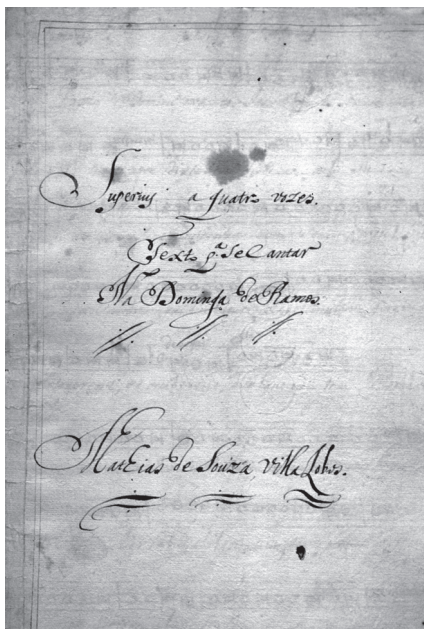 Superius a quatro vozes.
Texto p.ª se Cantar
Na Dominga de Ramos.
Mathias de Souza Villa Lobos.